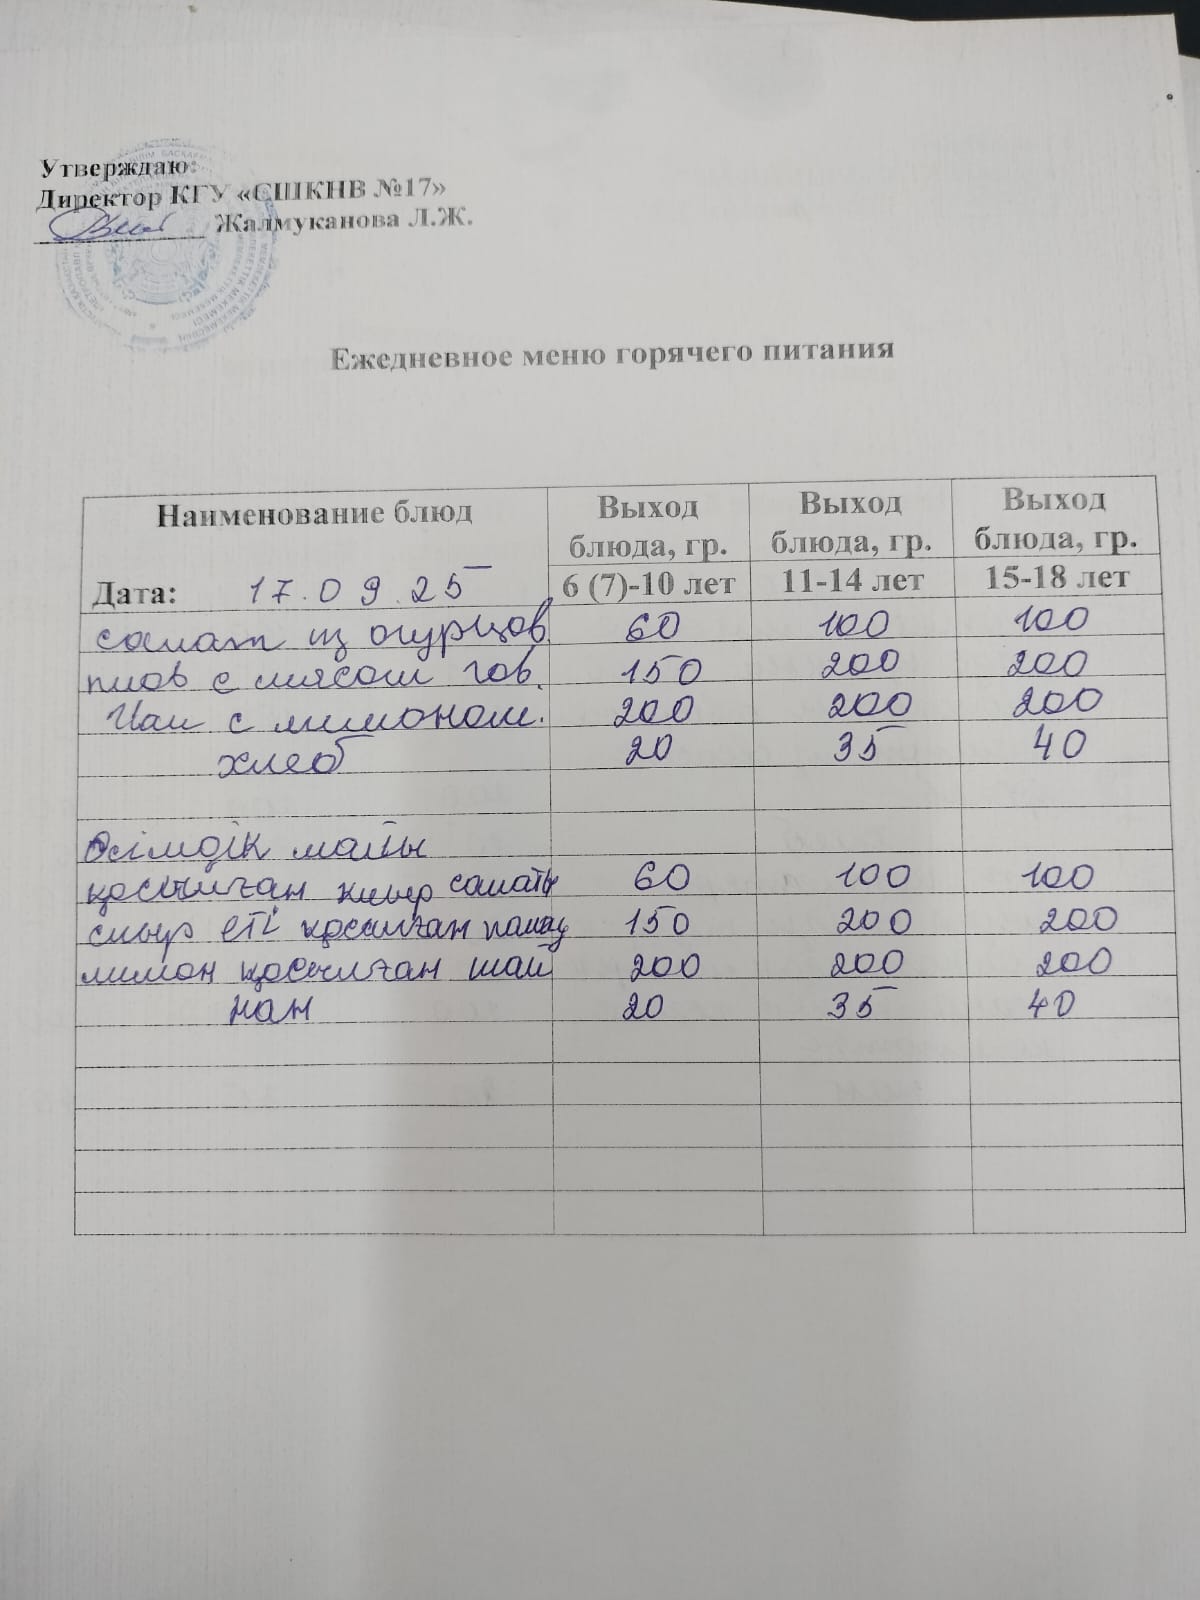 Утверждаю:
Директор КГУ «СШКНВ №17»
Жалмуканова Л.Ж.
Ежедневное меню горячего питания
Наименование блюд Выход блюда, гр. Выход блюда, гр. Выход блюда, гр.
Дата: 17.09.25 6 (7)-10 лет 11-14 лет 15-18 лет
салат из огурцов 60 100 100
плов с мясом гов. 150 200 200
Чай с лимоном. 200 200 200
хлеб 20 35 40
Өсімдік майы
қосылған қияр салаты 60 100 100
сиыр еті қосылған палау 150 200 200
лимон қосылған шай 200 200 200
нан 20 35 40